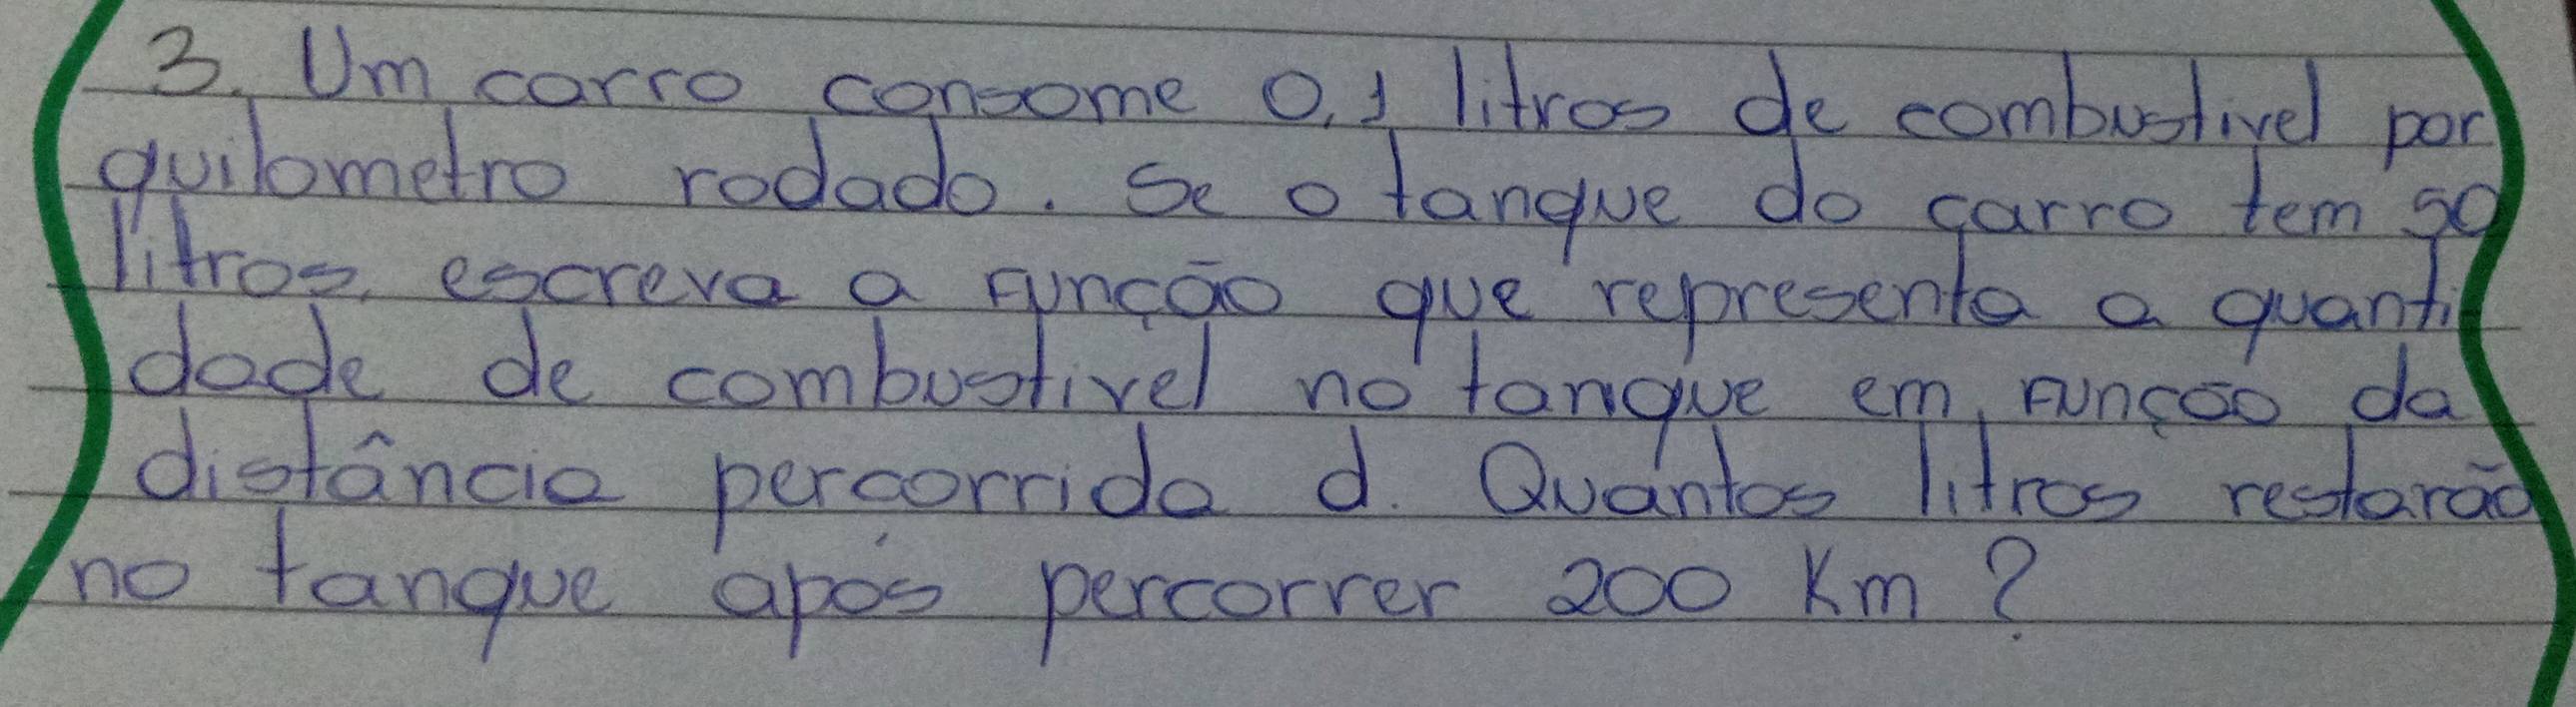 3. Um carro consome 0,1 litros de combustivel por
quilometro rodado. Se o tanque do carro tem 50
litros, escreva a função que representa a quanti
dade de combustivel no tanque em função da
distância percorrida d. Quantos litros restarão
no tanque após percorrer 200 Km ?